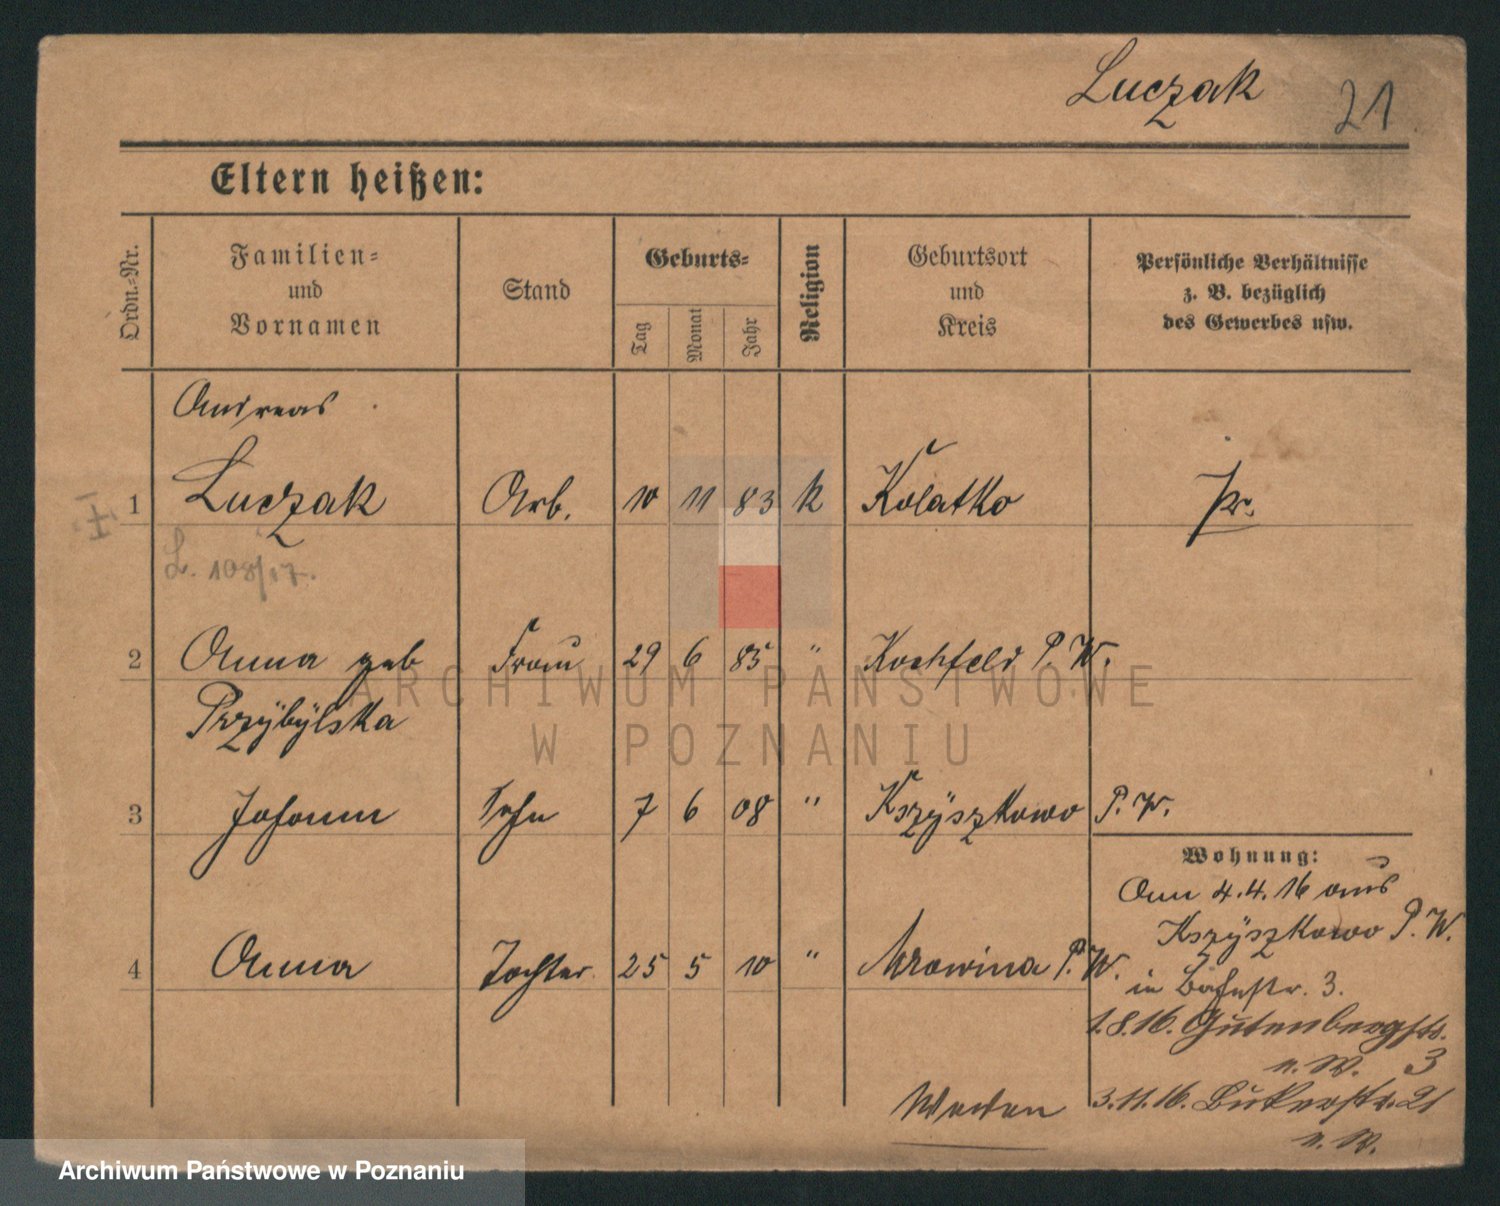 Luczak 21
Eltern heißen:
Ordn.-Nr.
Familien-
und
Vornamen
Stand
Geburts-
Tag
Monat
Jahr
Religion
Geburtsort
und
Kreis
Persönliche Verhältnisse
z. B. bezüglich
des Gewerbes usw.
Andreas
1 Luczak Arb. 10 11 83 k Kolatko Pr.
L. 108/17.
2 Anna geb Frau 29 6 85 " Kochfeld P. W.
Przÿbÿlska
3 Johann Sohn 7 6 08 " Kszÿszkowo P. W.
Wohnung:
4 Anna Tochter 25 5 10 " Mrowina P. W.
Am 4.4.16 aus
Kszÿszkowo P. W.
in Bahnstr. 3.
1.8.16. Gutenbergstr.
n. W. 3
3.11.16. Bukerstr. 21
n. W.
ARCHIWUM PAŃSTWOWE
W POZNANIU
Archiwum Państwowe w Poznaniu